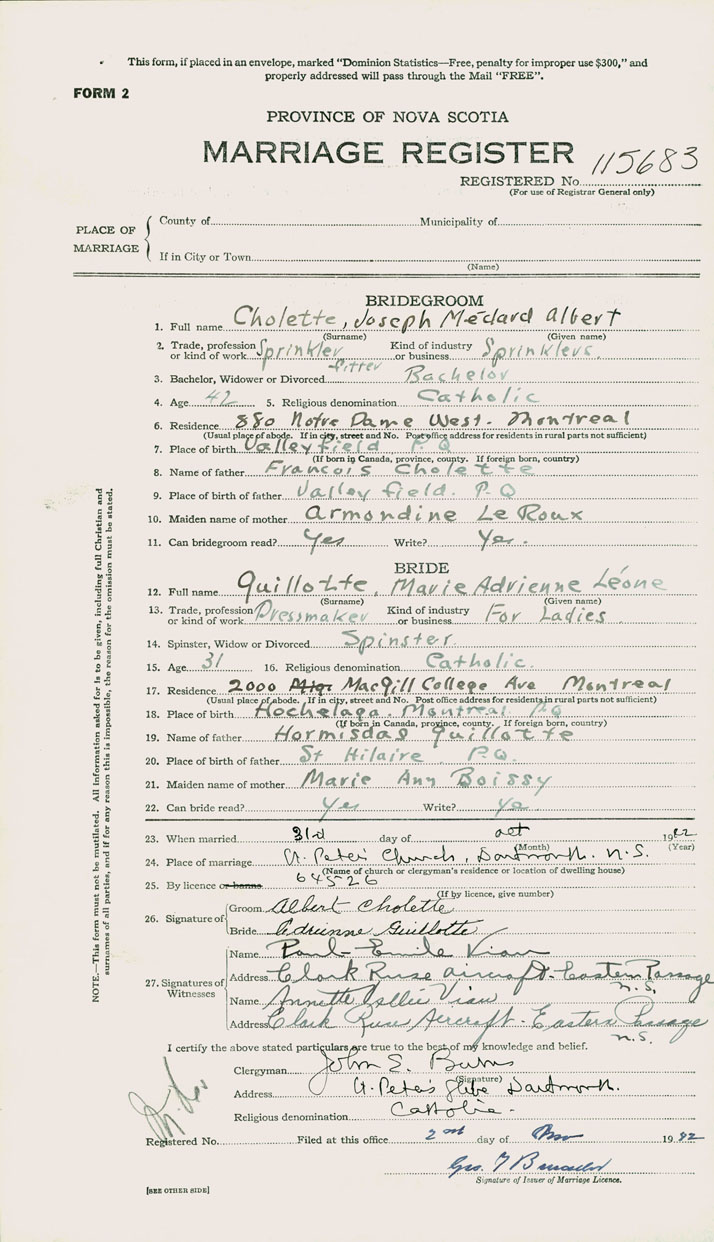 This form, if placed in an envelope, marked "Dominion Statistics—Free, penalty for improper use $300," and
properly addressed will pass through the Mail "FREE".
FORM 2
PROVINCE OF NOVA SCOTIA
MARRIAGE REGISTER
115683
REGISTERED No.
(For use of Registrar General only)
PLACE OF MARRIAGE
County of Municipality of
If in City or Town
(Name)
BRIDEGROOM
1. Full name Cholette, Joseph Médard Albert
(Surname) (Given name)
2. Trade, profession or kind of work Sprinkler fitter Kind of industry or business Sprinklers.
3. Bachelor, Widower or Divorced Bachelor
4. Age 42 5. Religious denomination Catholic
6. Residence 880 Notre Dame West. Montreal
(Usual place of abode. If in city, street and No. Post office address for residents in rural parts not sufficient)
7. Place of birth Valleyfield P.Q
(If born in Canada, province, county. If foreign born, country)
8. Name of father Francois Cholette
9. Place of birth of father Valleyfield. P.Q
10. Maiden name of mother Armondine Le Roux
11. Can bridegroom read? Yes Write? Yes.
BRIDE
12. Full name Quillotte, Marie Adrienne Léone
(Surname) (Given name)
13. Trade, profession or kind of work Dressmaker Kind of industry or business For Ladies
14. Spinster, Widow or Divorced Spinster
15. Age 31 16. Religious denomination Catholic.
17. Residence 2000 MacGill College Ave Montreal
(Usual place of abode. If in city, street and No. Post office address for residents in rural parts not sufficient)
18. Place of birth Hochelaga. Montreal PQ
(If born in Canada, province, county. If foreign born, country)
19. Name of father Hormisdas Quillotte
20. Place of birth of father St Hilaire P.Q.
21. Maiden name of mother Marie Ann Boissy
22. Can bride read? Yes Write? Yes
23. When married 31st day of Oct 1942
(Month) (Year)
24. Place of marriage St. Peter's Church, Dartmouth. N.S.
(Name of church or clergyman's residence or location of dwelling house)
25. By licence or banns 64526
(If by licence, give number)
26. Signature of
Groom Albert Cholette
Bride Adrienne Guillotte
27. Signatures of Witnesses
Name Paul-Emile Viau
Address Clark Ruse aircraft. Eastern Passage N.S.
Name Annette Viau
Address Clark Ruse Aircraft. Eastern Passage N.S.
I certify the above stated particulars are true to the best of my knowledge and belief.
Clergyman John E. Burns
(Signature)
Address St. Peter's Glebe Dartmouth.
Religious denomination Catholic.
Registered No. Filed at this office 2nd day of Nov 1942
Geo.
Signature of Issuer of Marriage Licence.
[SEE OTHER SIDE]
NOTE.—This form must not be mutilated. All information asked for is to be given, including full Christian and
surnames of all parties, and if for any reason this is impossible, the reason for the omission must be stated.